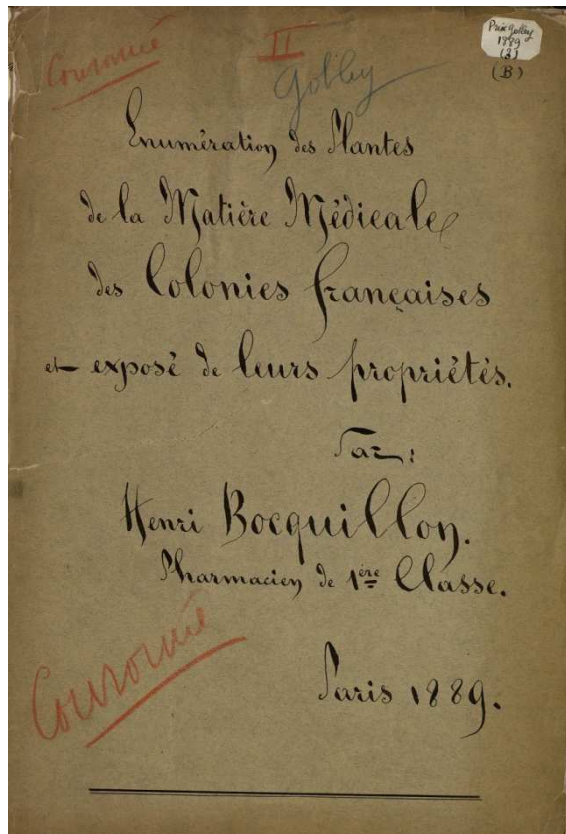 Couronné
II
Golby
Prix Golby
1889
(3)
(B)
Enumération des Plantes
de la Matière Médicale
des Colonies françaises
et exposé de leurs propriétés.
Par:
Henri Bocquillon.
Pharmacien de 1ère Classe.
Couronné
Paris 1889.